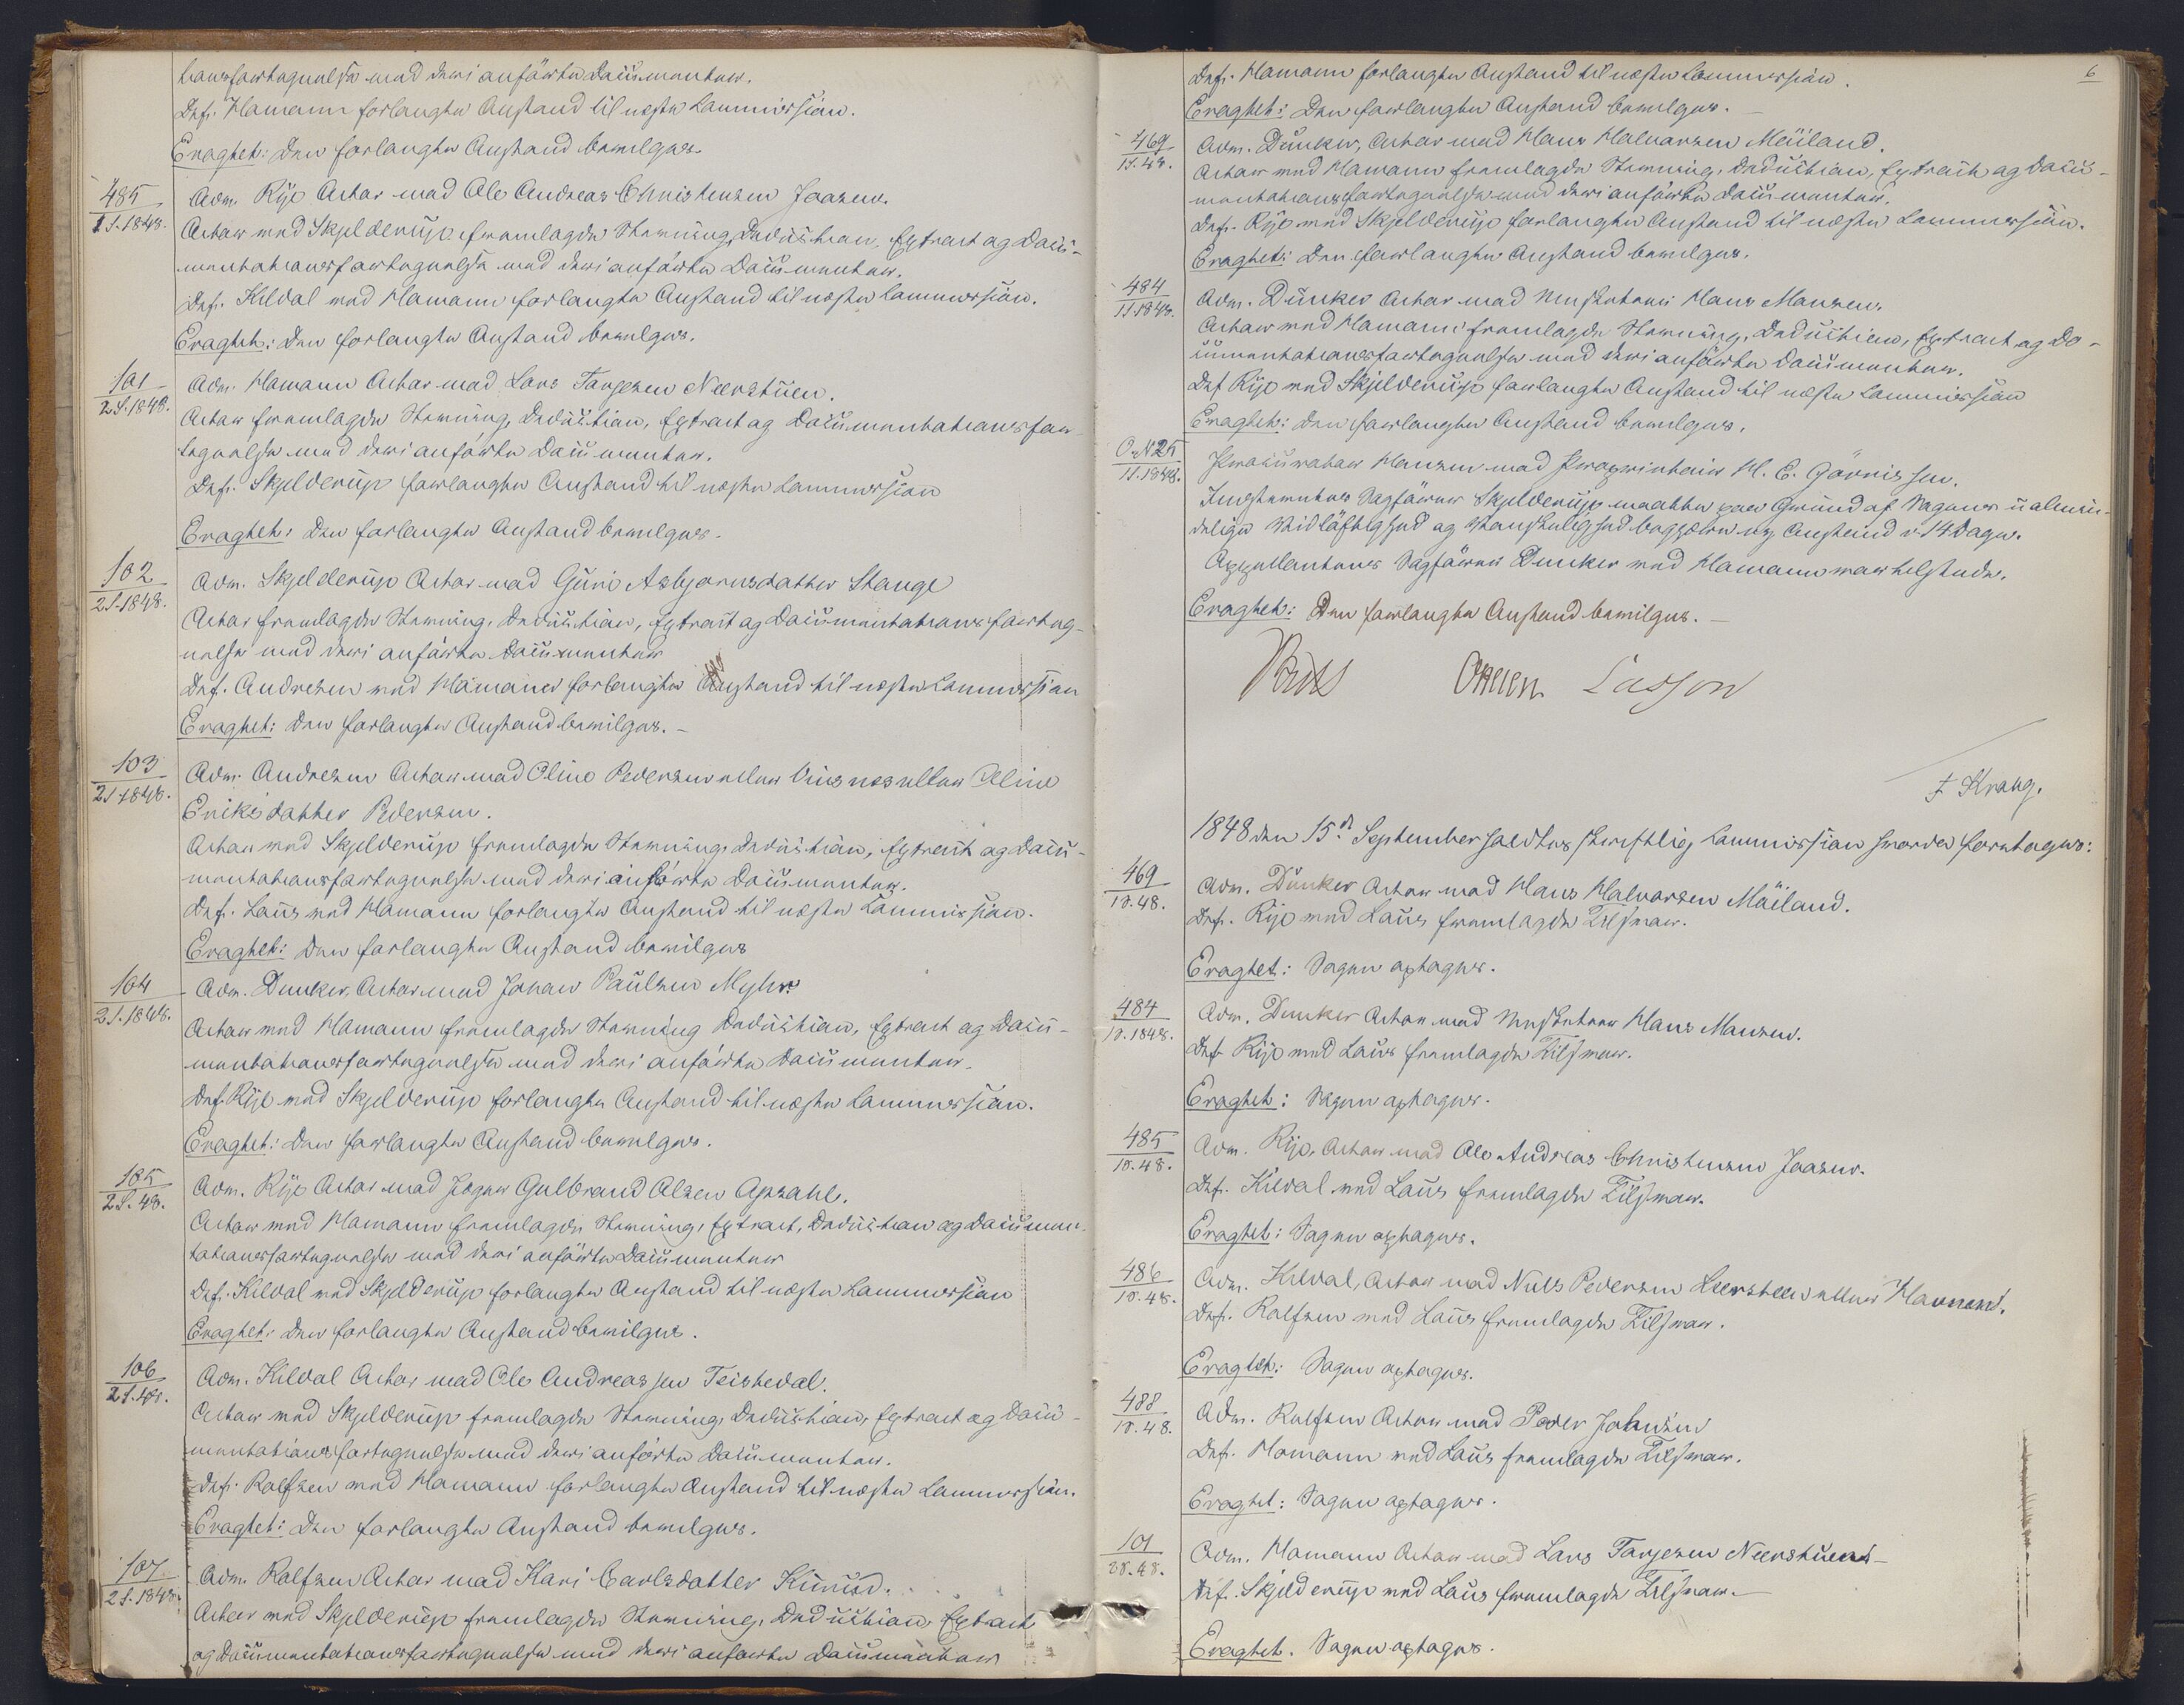 tionsfortegnelse med deri anförte Documenter.
Def. Hamann forlangte Anstand til næste Commission.
Eragtet: Den forlangte Anstand bevilges.
485
1 S. 1848.
Adv. Rije Actor mod Ole Andreas Christensen Joasen.
Actor ved Skjelderup fremlagde Stævning, Deduction, Extract og Docu-
mentationsfortegnelse med deri anförte Documenter.
Def. Kildal ved Hamann forlangte Anstand til næste Commission.
Eragtet: Den forlangte Anstand bevilges.
101
2 S. 1848.
Adv. Hamann Actor mod Lars Tarjesen Neerstuen.
Actor fremlagde Stævning, Deduction, Extract og Documentationsfor-
tegnelse med deri anförte Documenter.
Def. Skjelderup forlangte Anstand til næste Commission
Eragtet: Den forlangte Anstand bevilges.
102
2 S. 1848.
Adv. Skjelderup Actor mod Guri Asbjornsdatter Stange
Actor fremlagde Stævning, Deduction, Extract og Documentationsforteg-
nelse med deri anförte Documenter
Def. Andresen ved Hamann forlangte Anstand til næste Commission
Eragtet: Den forlangte Anstand bevilges. -
103
2 S 1848.
Adv. Andresen Actor mod Oline Pedersen eller Viusnes eller Oline
Eriksdatter Pedersen.
Actor ved Skjelderup fremlagde Stævning, Deduction, Extract og Docu-
mentationsfortegnelse med deri anförte Documenter.
Def. Laus ved Hamann forlangte Anstand til næste Commission.
Eragtet: Den forlangte Anstand bevilges
104
2 S. 1848.
Adv. Dunker, Actor mod Johan Paulsen Myhre
Actor ved Hamann fremlagde Stævning Deduction, Extract og Docu-
mentationsfortegnelse med deri anförte Documenter.
Def. Rije ved Skjelderup forlangte Anstand til næste Commission.
Eragtet: Den forlangte Anstand bevilges.
105
2 S. 48.
Adv. Rije Actor mod Jogen Gulbrand Olsen Opsahl.
Actor ved Hamann fremlagde Stævning, Extract, Deduction og Documen-
tationsfortegnelse med deri anförte Documenter
Def. Kildal ved Skjelderup forlangte Anstand til næste Commission
Eragtet: Den forlangte Anstand bevilges.
106
2 S. 48.
Adv. Kildal Actor mod Ole Andreassen Teistedal.
Actor ved Skjelderup fremlagde Stævning, Deduction, Extract og Docu-
mentationsfortegnelse med deri anförte Documenter.
Def. Rolfsen ved Hamann forlangte Anstand til næste Commission.
Eragtet: Den forlangte Anstand bevilges.
107
2 S. 1848.
Adv. Rolfsen Actor mod Kari Carlsdatter Kirud.
Actor ved Skjelderup fremlagde Stævning, Deduction, Extract
og Documentationsfortegnelse med deri anförte Documenter
6
Def. Hamann forlangte Anstand til næste Commission.
Eragtet: Den forlangte Anstand bevilges. -
469
1 S. 48.
Adv. Dunker, Actor mod Hans Halvorsen Meiland.
Actor ved Hamann fremlagde Stævning, Deduction, Extract og Docu-
mentationsfortegnelse med deri anförte Documenter.
Def. Rije ved Skjelderup forlangte Anstand til næste Commission.
Eragtet: Den forlangte Anstand bevilges.
484
1 S 1848.
Adv. Dunker Actor mod Musketeer Hans Hansen.
Actor ved Hamann fremlagde Stævning, Deduction, Extract og Do-
cumentationsfortegnelse med deri anförte Documenter.
Def Rije ved Skjelderup forlangte Anstand til næste Commission
Eragtet: Den forlangte Anstand bevilges.
O. N 25
1 S. 1848.
Procurator Hansen mod Proprietair H. E. Görrissen.
Instevntes Sagförer Skjelderup maatte paa Grund af Sagens ualmin-
delige Vidlöftighed og Vanskelighed begjære ny Anstand i 14 Dage.
Appellantens Sagförer Dunker ved Hamann var tilstede.
Eragtet: Den forlangte Anstand bevilges. -
Lasson
F Krong.
1848 den 15de September holdtes skriftlig Commission hvorda foretoges:
469
1 S. 48.
Adv. Dunker Actor mod Hans Halvorsen Mäiland.
Def. Rije ved Laus fremlagde Tilsvar.
Eragtet: Sagen optages.
484
1 S. 1848.
Adv. Dunker Actor mod Musketeer Hans Hansen.
Def. Rije ved Laus fremlagde Tilsvar.
Eragtet: Sagen optages.
485
1 S. 48.
Adv. Rije, Actor mod Ole Andreas Christensen Joasen.
Def. Kildal ved Laus fremlagde Tilsvar.
Eragtet: Sagen optages.
486
1 S. 48.
Adv. Kildal, Actor mod Niels Pedersen Leersteen eller
Def. Rolfsen ved Laus fremlagde Tilsvar.
Eragtet: Sagen optages.
488
1 S. 48.
Adv. Rolfsen Actor mod Peder Johnsen
Def. Hamann ved Laus fremlagde Tilsvar.
Eragtet: Sagen optages.
101
2 S. 48.
Adv. Hamann Actor mod Lars Tarjesen Neerstuen -
Def. Skjelderup ved Laus fremlagde Tilsvar. -
Eragtet. Sagen optages.